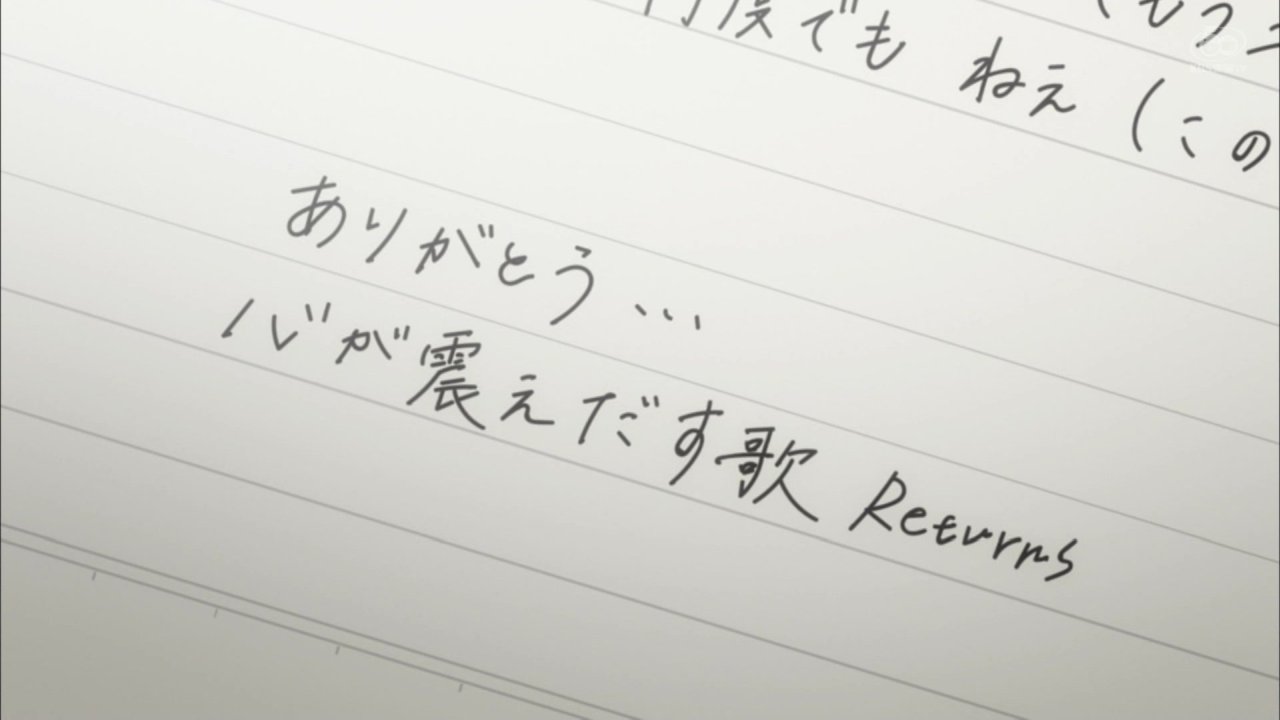 何度でも ねぇ (この
ありがとう…
心が震えだす歌 Returns